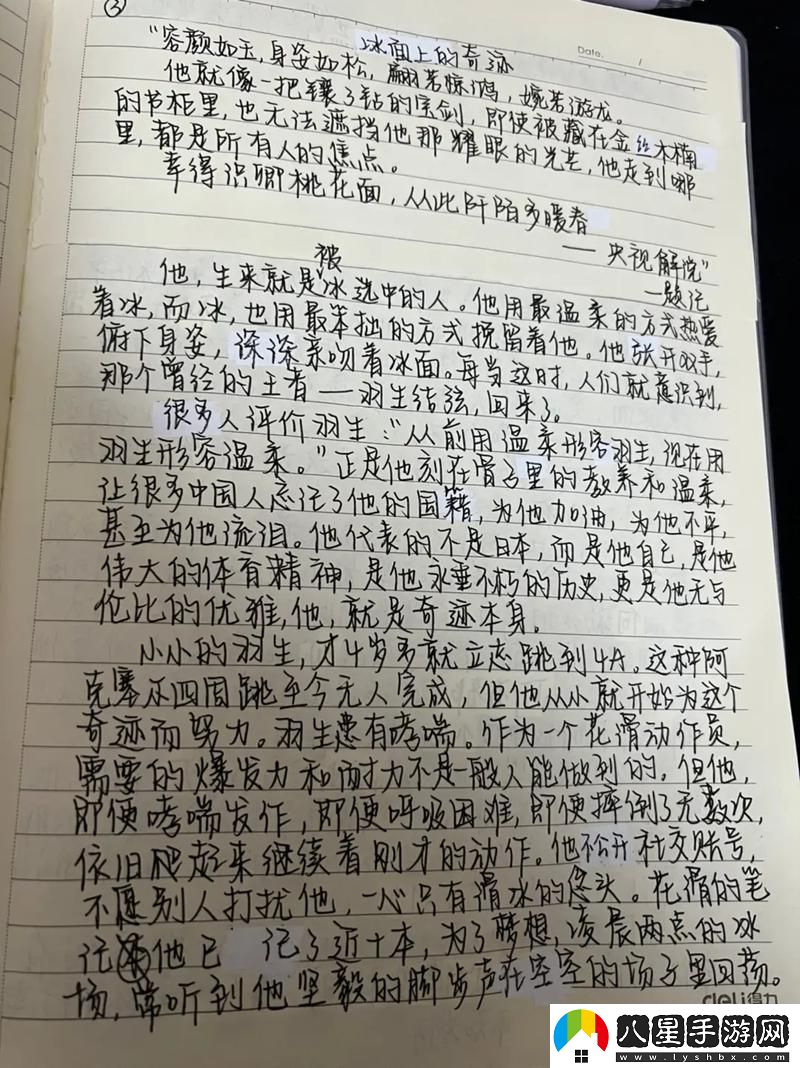 ③
冰面上的奇迹
Date. /
“容颜如玉,身姿如松,翩若惊鸿,婉若游龙。
他就像一把镶了钻的宝剑,即使被藏在金丝木楠
的书柜里,也无法遮挡他那耀眼的光芒,他走到哪
里,都是所有人的焦点。
幸得识卿桃花面,从此阡陌多暖春
— 央视解说”
—题记
他,生来就是被冰选中的人。他用最温柔的方式热爱
着冰,而冰,也用最笨拙的方式挽留着他。他张开双手,
俯下身姿,深深亲吻着冰面。每当这时,人们就意识到,
那个曾经的王者——羽生结弦,回来了。
很多人评价羽生:“从前用温柔形容羽生,现在用
羽生形容温柔。”正是他刻在骨子里的教养和温柔,
让很多中国人忘记了他的国籍,为他加油,为他不平,
甚至为他流泪。他代表的不是日本,而是他自己,是他
伟大的体育精神,是他永垂不朽的历史,更是他无与
伦比的优雅,他,就是奇迹本身。
小小的羽生,才4岁多就立志跳到4A。这种阿
克塞尔四周跳至今无人完成,但他从小就开始为这个
奇迹而努力。羽生患有哮喘。作为一个花滑动作员,
需要的爆发力和耐力不是一般人能做到的。但他,
即便哮喘发作,即便呼吸困难,即便摔倒了无数次,
依旧爬起来继续着刚才的动作。他不公开社交账号,
不愿别人打扰他,一心只有滑冰的念头。花滑的笔
记他已 记了近十本,为了梦想,凌晨两点的冰
场,常听到他坚毅的脚步声在空空的场子里回荡。
deli得力
八星手游网
www.lyshbx.com